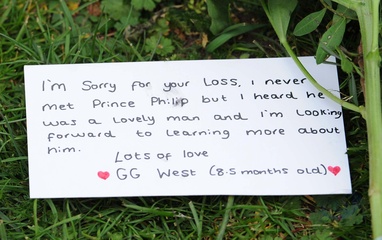 I'm Sorry for your Loss, I never
met Prince Philip but I heard he
was a lovely man and I'm Looking
forward to learning more about
him.
Lots of love
GG West (8.5 months old)